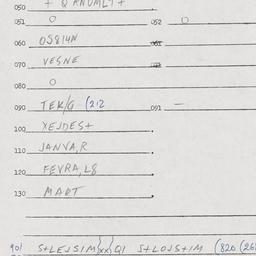 050
051 0 052 0
060 OS814N 061
070 VESNE
080 0
090 TEK/G (212 091 —
100 XEJDES+
110 JANVA,R
120 FEVRA,L8
130 MART
901 S+LEJSIM)xx)QI S+LOJS+IM (820 (26